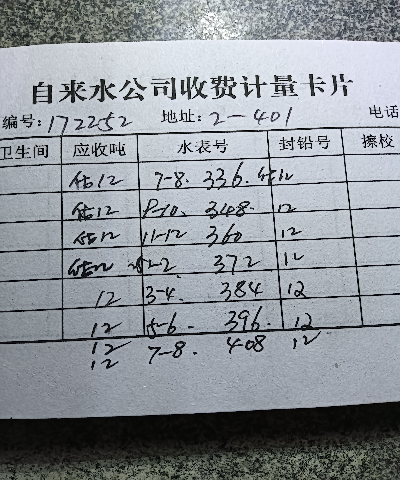 自来水公司收费计量卡片
编号:172252 地址:2-401 电话
卫生间 应收吨 水表号 封铅号 擦校
估12 7-8. 336. 估12
估12 9-10. 348. 12
估12 11-12 360 12
估12 1-2. 372 12
12 3-4. 384 12
12 5-6. 396. 12
12 7-8. 408 12
12